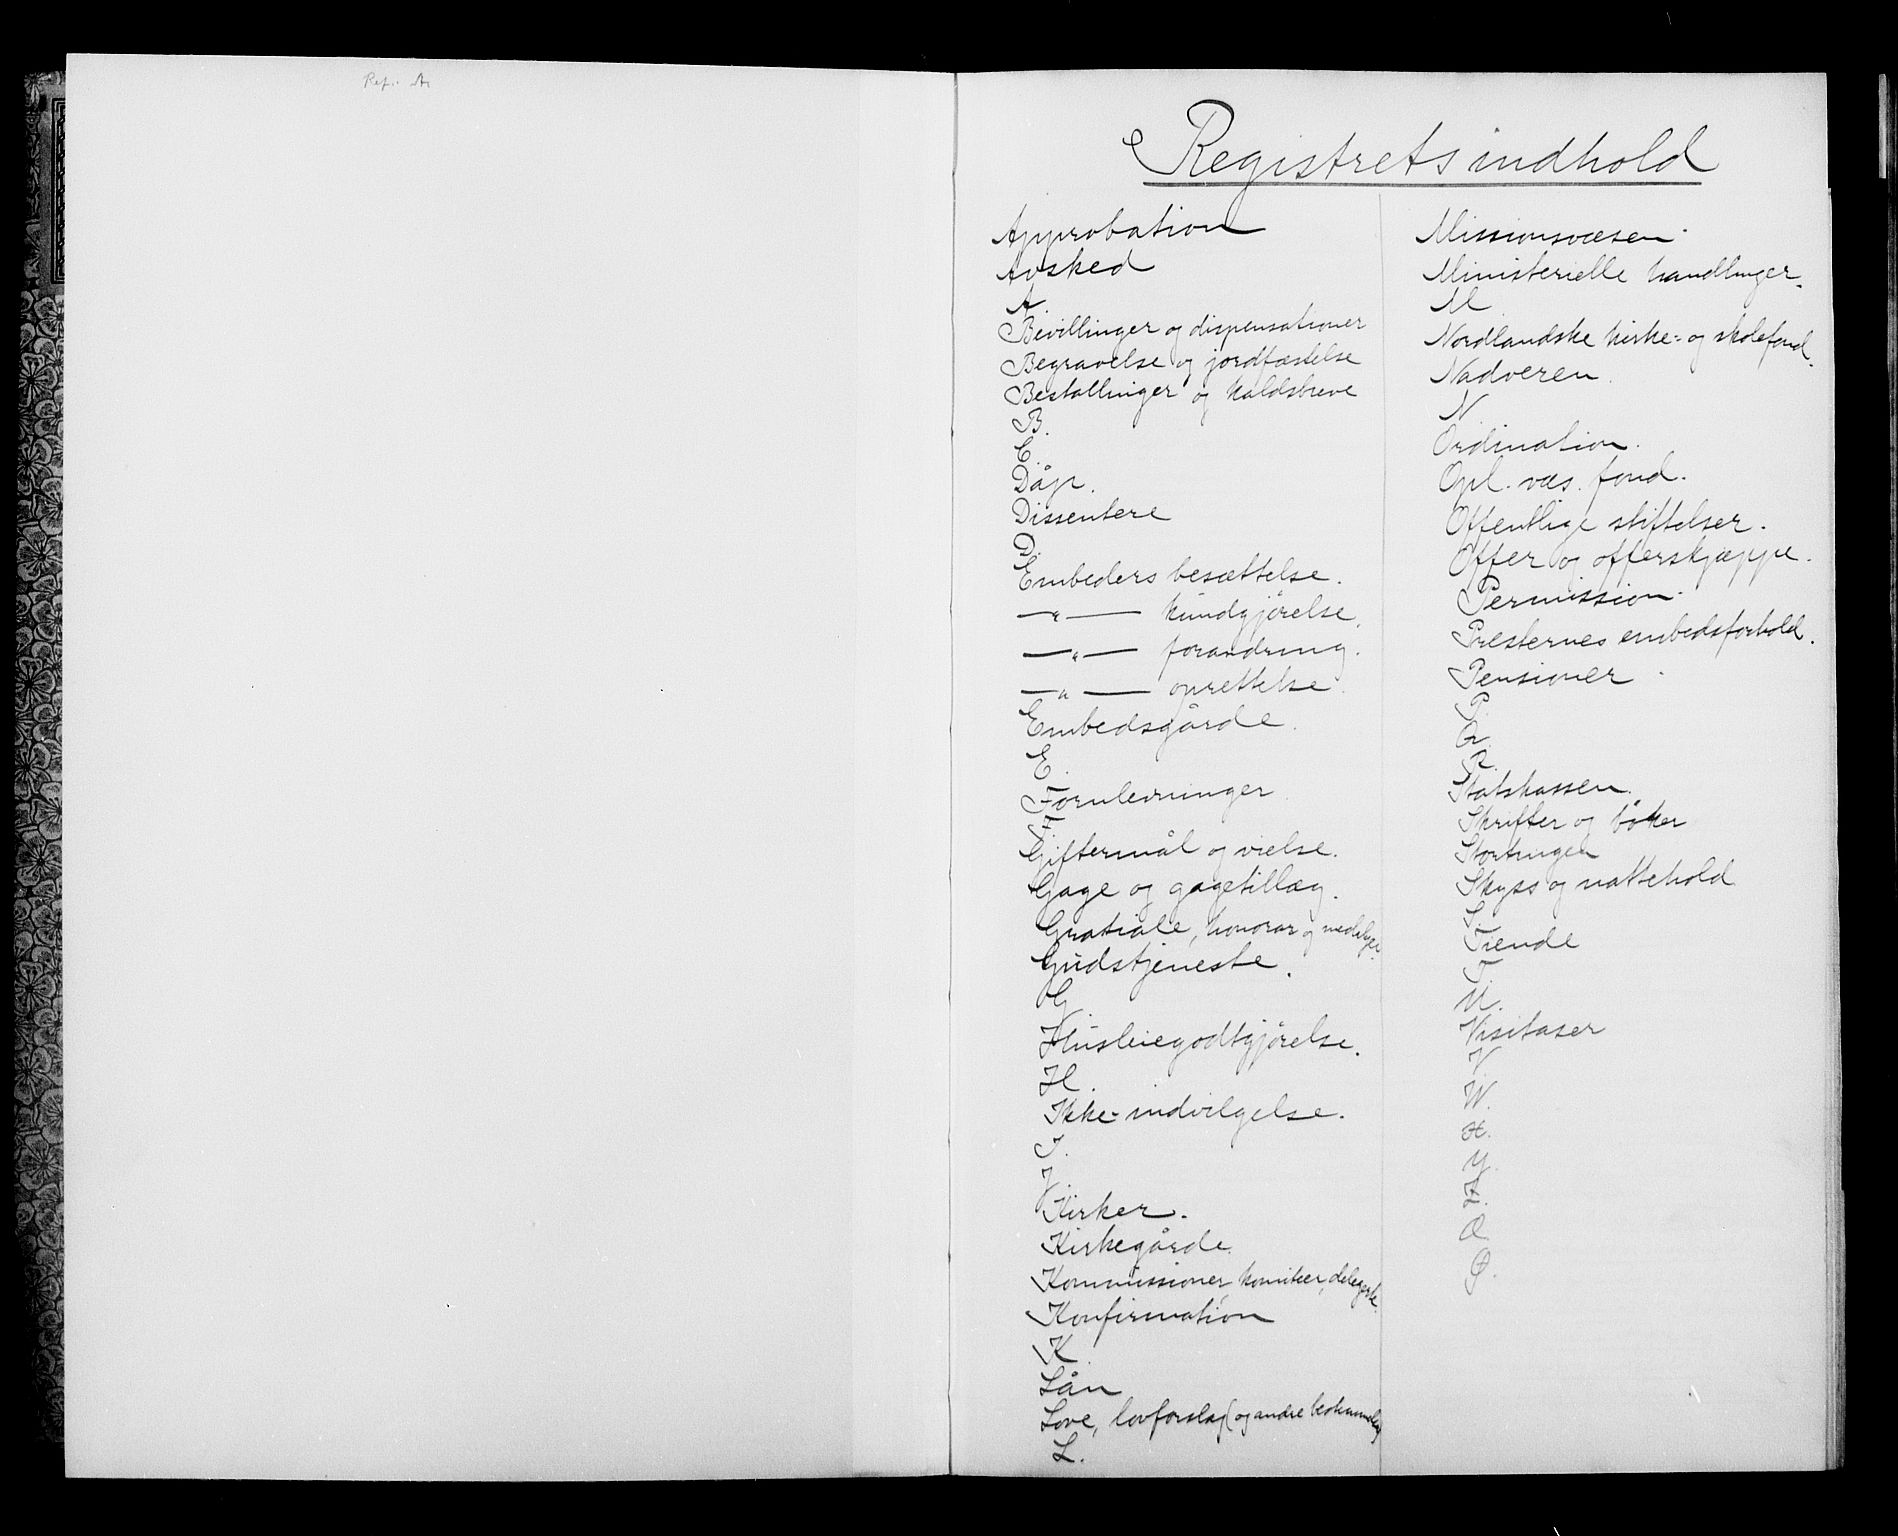 Ref. A
Registrets indhold
Approbation
Avsked
A.
Bevillinger og dispensationer
Begravelse og jordfæstelse
Bestallinger og kaldsbreve
B.
C.
Dåp.
Dissentere
D.
Embeders besættelse.
—"— kundgjörelse.
—"— forandring.
—"— oprettelse.
Embedsgårde.
E.
Fornlevninger
F
Giftermål og vielse.
Gage og gagetillæg.
Gratiale, honorar og
Gudstjeneste.
G.
Husleiegodtgjörelse.
H.
Ikke-indvilgelse.
I.
J.
Kirker.
Kirkegårde.
Kommissioner, komiteer, delegerte.
Konfirmation
K.
Lån
Love, lovforslag (og andre
L.
Missionsvæsen.
Ministerielle handlinger.
M
Nordlandske kirke- og skolefond.
Nadveren.
N.
Ordination.
Opl. væs. fond.
Offentlige stiftelser.
Offer og offerskjæppe.
Permission.
Presternes embedsforhold.
Pensioner.
P.
Q.
R.
Statskassen.
Skrifter og böker
Stortinget
Skyss og nattehold
S.
Tiende
T.
U.
Visitaser
V
W.
X.
Y.
Z.
Æ.
Ø.